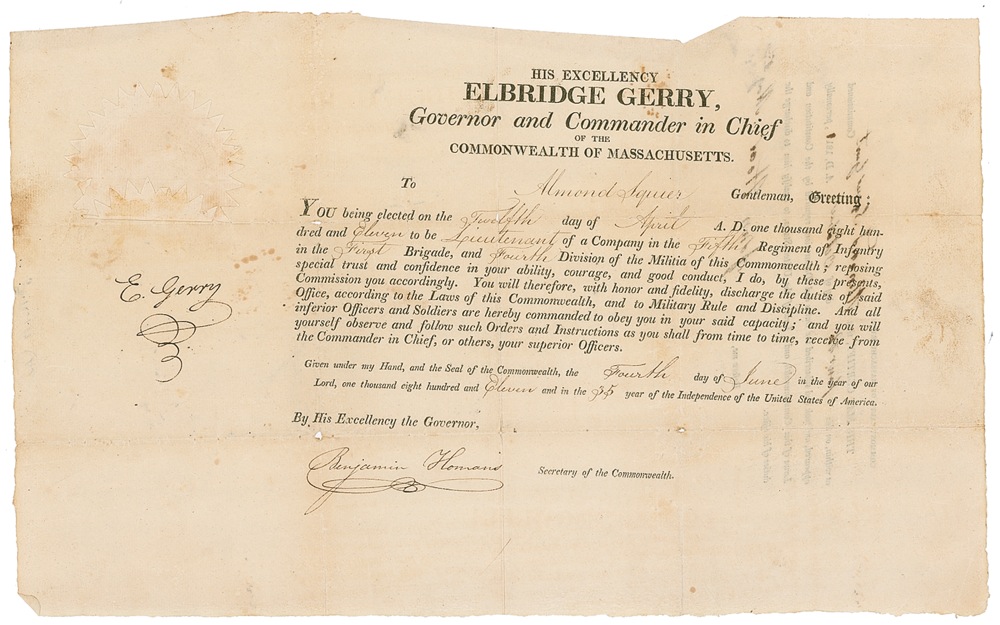 HIS EXCELLENCY
ELBRIDGE GERRY,
Governor and Commander in Chief
OF THE
COMMONWEALTH OF MASSACHUSETTS.
To Almond Squier Gentleman, Greeting:
YOU being elected on the Twelfth day of April A. D. one thousand eight hun-
dred and Eleven to be Lieutenant of a Company in the Fifth Regiment of Infantry
in the First Brigade, and Fourth Division of the Militia of this Commonwealth; reposing
special trust and confidence in your ability, courage, and good conduct, I do, by these presents,
Commission you accordingly. You will therefore, with honor and fidelity, discharge the duties of said
Office, according to the Laws of this Commonwealth, and to Military Rule and Discipline. And all
inferior Officers and Soldiers are hereby commanded to obey you in your said capacity; and you will
yourself observe and follow such Orders and Instructions as you shall from time to time, receive from
the Commander in Chief, or others, your superior Officers.
E. Gerry
Given under my Hand, and the Seal of the Commonwealth, the Fourth day of June in the year of our
Lord, one thousand eight hundred and Eleven and in the 35 year of the Independence of the United States of America.
By His Excellency the Governor,
Benjamin Homans Secretary of the Commonwealth.